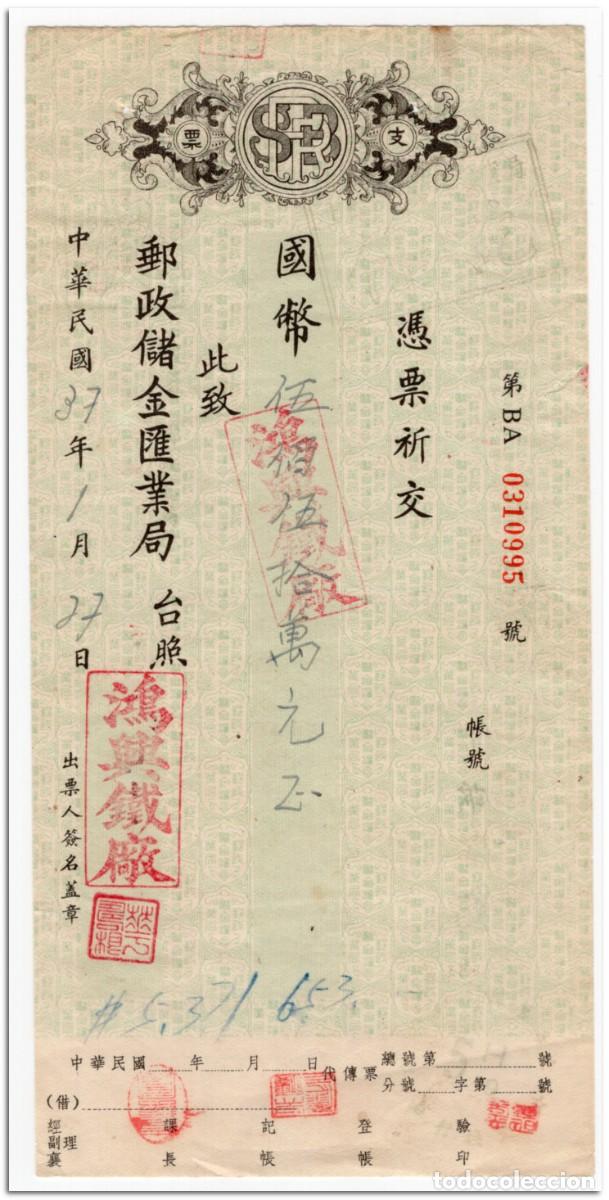 支票
第 BA 0310995 號
帳號
憑票祈交
國幣伍佰伍拾萬元正
鴻興鐵廠
此致
郵政儲金匯業局 台照
中華民國37年1月27日
出票人簽名蓋章
鴻興鐵廠
#5.371 653.
中華民國 年 月 日 代傳票 總號第 號
分號 字第 號
(借)
經副襄理 課長 記帳 登帳 驗印
todocoleccion.net